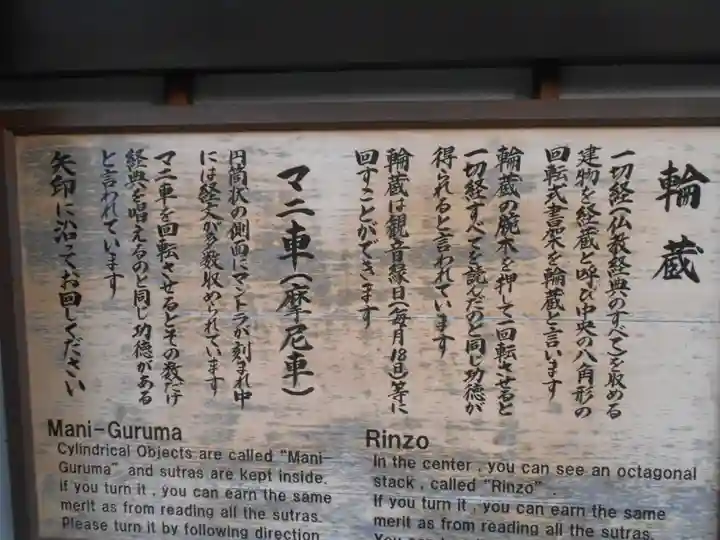 輪蔵
一切経(仏教経典のすべて)を収める
建物を経蔵と呼び中央の八角形の
回転式書架を輪蔵と言います
輪蔵の腕木を押して一回転させると
一切経すべてを読んだのと同じ功徳が
得られると言われています
輪蔵は観音縁日(毎月18日)等に
回すことができます
マニ車(摩尼車)
円筒状の側面にマントラが刻まれ中
には経文が多数収められています
マニ車を回転させるとその数だけ
経典を唱えるのと同じ功徳がある
と言われています
矢印に沿ってお回しください
Mani-Guruma
Cylindrical Objects are called "Mani-
Guruma" and sutras are kept inside.
If you turn it , you can earn the same
merit as from reading all the sutras.
Please turn it by following direction
Rinzo
In the center , you can see an octagonal
stack , called "Rinzo" .
If you turn it , you can earn the same
merit as from reading all the sutras.